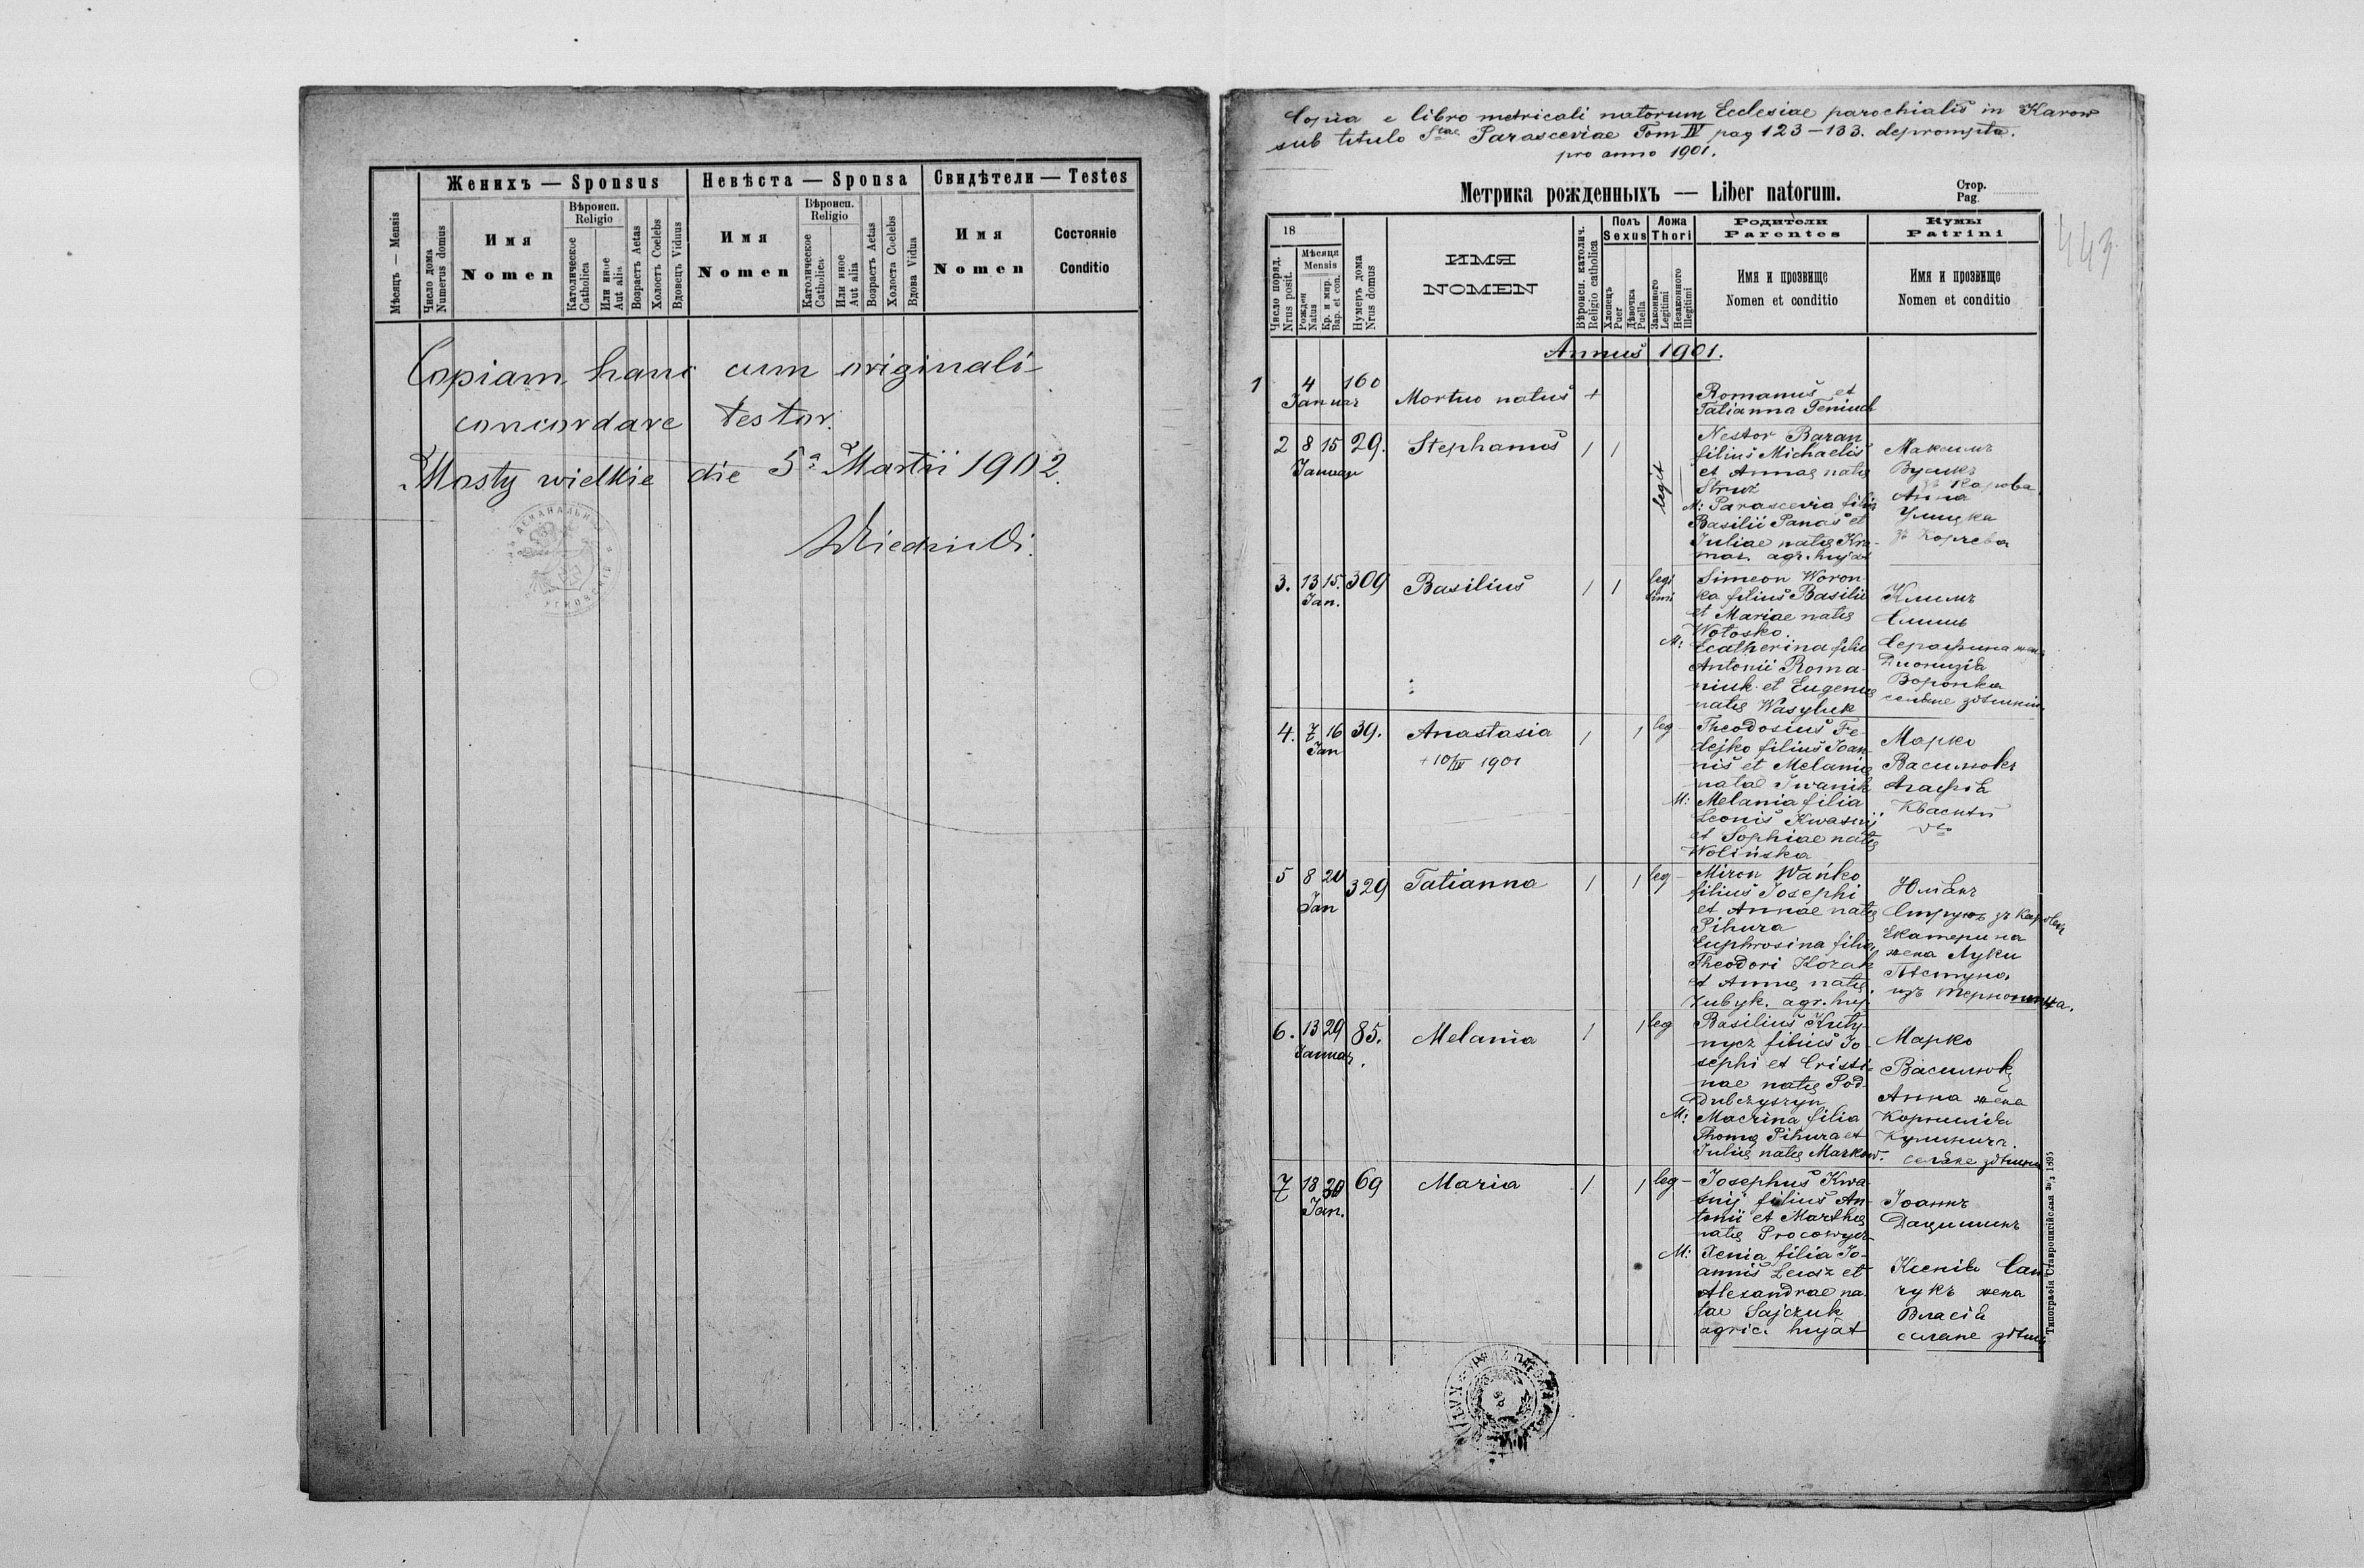 Женихъ — Sponsus
Невѣста — Sponsa
Свидѣтели — Testes
Мѣсяцъ — Mensis
Число дома
Numerus domus
Имя
Nomen
Вѣроисп.
Religio
Католическое
Catholica
Или иное
Aut alia
Возрастъ Aetas
Холостъ Coelebs
Вдовецъ Viduus
Имя
Nomen
Вѣроисп.
Religio
Католическое
Catholica
Или иное
Aut alia
Возрастъ Aetas
Холоста Coelebs
Вдова Vidua
Имя
Nomen
Состояніе
Conditio
Copiam hanc cum originali
concordare testor.
Mosty wielkie die 5ª Martii 1902.
Copia e libro metricali natorum Ecclesiae parochialis in Karow
sub titulo Scae Parasceviae Tom IV pag 123-133. deprompta.
pro anno 1901.
Метрика рожденныхъ — Liber natorum.
Стор.
Pag.
443
18
Число поряд.
Nrus posit.
Мѣсяця
Mensis
Рожден
Natus
Кр. и мир.
Bap. et con.
Нумеръ дома
Nrus domus
ИМЯ
NOMEN
Вѣроисп. католич.
Religio catholica
Полъ
Sexus
Хлопецъ
Puer
Дѣвочка
Puella
Ложа
Thori
Законного
Legitimi
Незаконного
Illegitimi
Родители
Parentes
Имя и прозвище
Nomen et conditio
Кумы
Patrini
Имя и прозвище
Nomen et conditio
Annus 1901.
1 4 Januar 160 Mortuo natus +
Romanus et
Tatianna Feniuch
2 8 15 Januar 29. Stephanus 1 1 legit
Nestor Baran
filius Michaelis
et Annae natę
Struż
M: Parascevia filia
Basilii Panas et
Juliae natę Kra-
mar agr. hujat
Максимъ
Вусикъ
зъ Карова
Анна
зъ Корчева
3. 13 15. Jan. 309 Basilius 1 1 legi timi
Simeon Woron-
ka filius Basilii
et Mariae natę
Wołosko.
M: Ecatherina filia
Antonii Roma-
niuk et Eugenię
natę Wasyluk
Климъ
Серафина жена
Дионизія
Воронка
4. 7 16 Jan 39. Anastasia 1 1 leg
+ 10/IV 1901
Theodosius Fe-
dejko filius Joan-
nis et Melanię
natae Iwanik
M: Melania filia
Leonis Kwasnij
et Sophiae natę
Wolińska
Марко
Василюкъ
Агафія
Кваснѣй
5 8 20 Jan 329 Tatianna 1 1 leg
Miron Wańko
filius Josephi
et Annae natę
Pihura
Euphrosina filia
Theodori Kozak
et Annę natę
Zubyk. agr. huj.
Юліянъ
Струкъ зъ Карова
Екатерина
жена Луки
Пѣстуна
изъ Тернополя.
6. 13 29 Januar 85. Melania 1 1 leg
Basilius Kuty-
nycz filius Jo-
sephi et Cristi-
nae natę Pod-
dubczyszyn
M: Macrina filia
Thomę Pihura et
Julię natę Markow.
Марко
Василюкъ
Анна жена
Корнилія
7 18 30 Jan. 69 Maria 1 1 leg
Josephus Kwa-
śnij filius An-
tonii et Marthę
natę Procowycz
M: Xenia filia Jo-
annis Leusz et
Alexandrae na-
tae Sajczuk
agric. hujat
Іоаннъ
Дацишинъ
Ксенія Сай
чукъ жена
Власія
Типографія Ставропигійская 1895